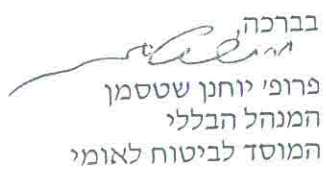 בברכה,
פרופ' יוחנן שטסמן
המנהל הכללי
המוסד לביטוח לאומי